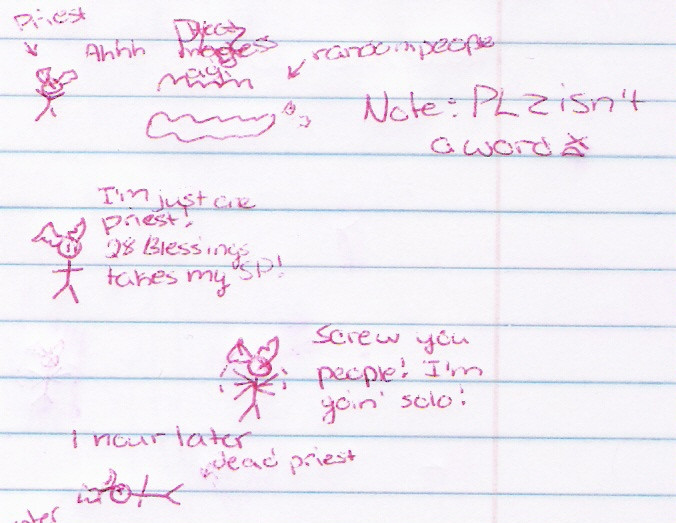 Priest
Ahhh
random people
Note: PLZ isn't
a word
I'm just one
priest!
28 Blessings
takes my SP!
Screw you
people! I'm
goin' solo!
1 hour later
dead priest